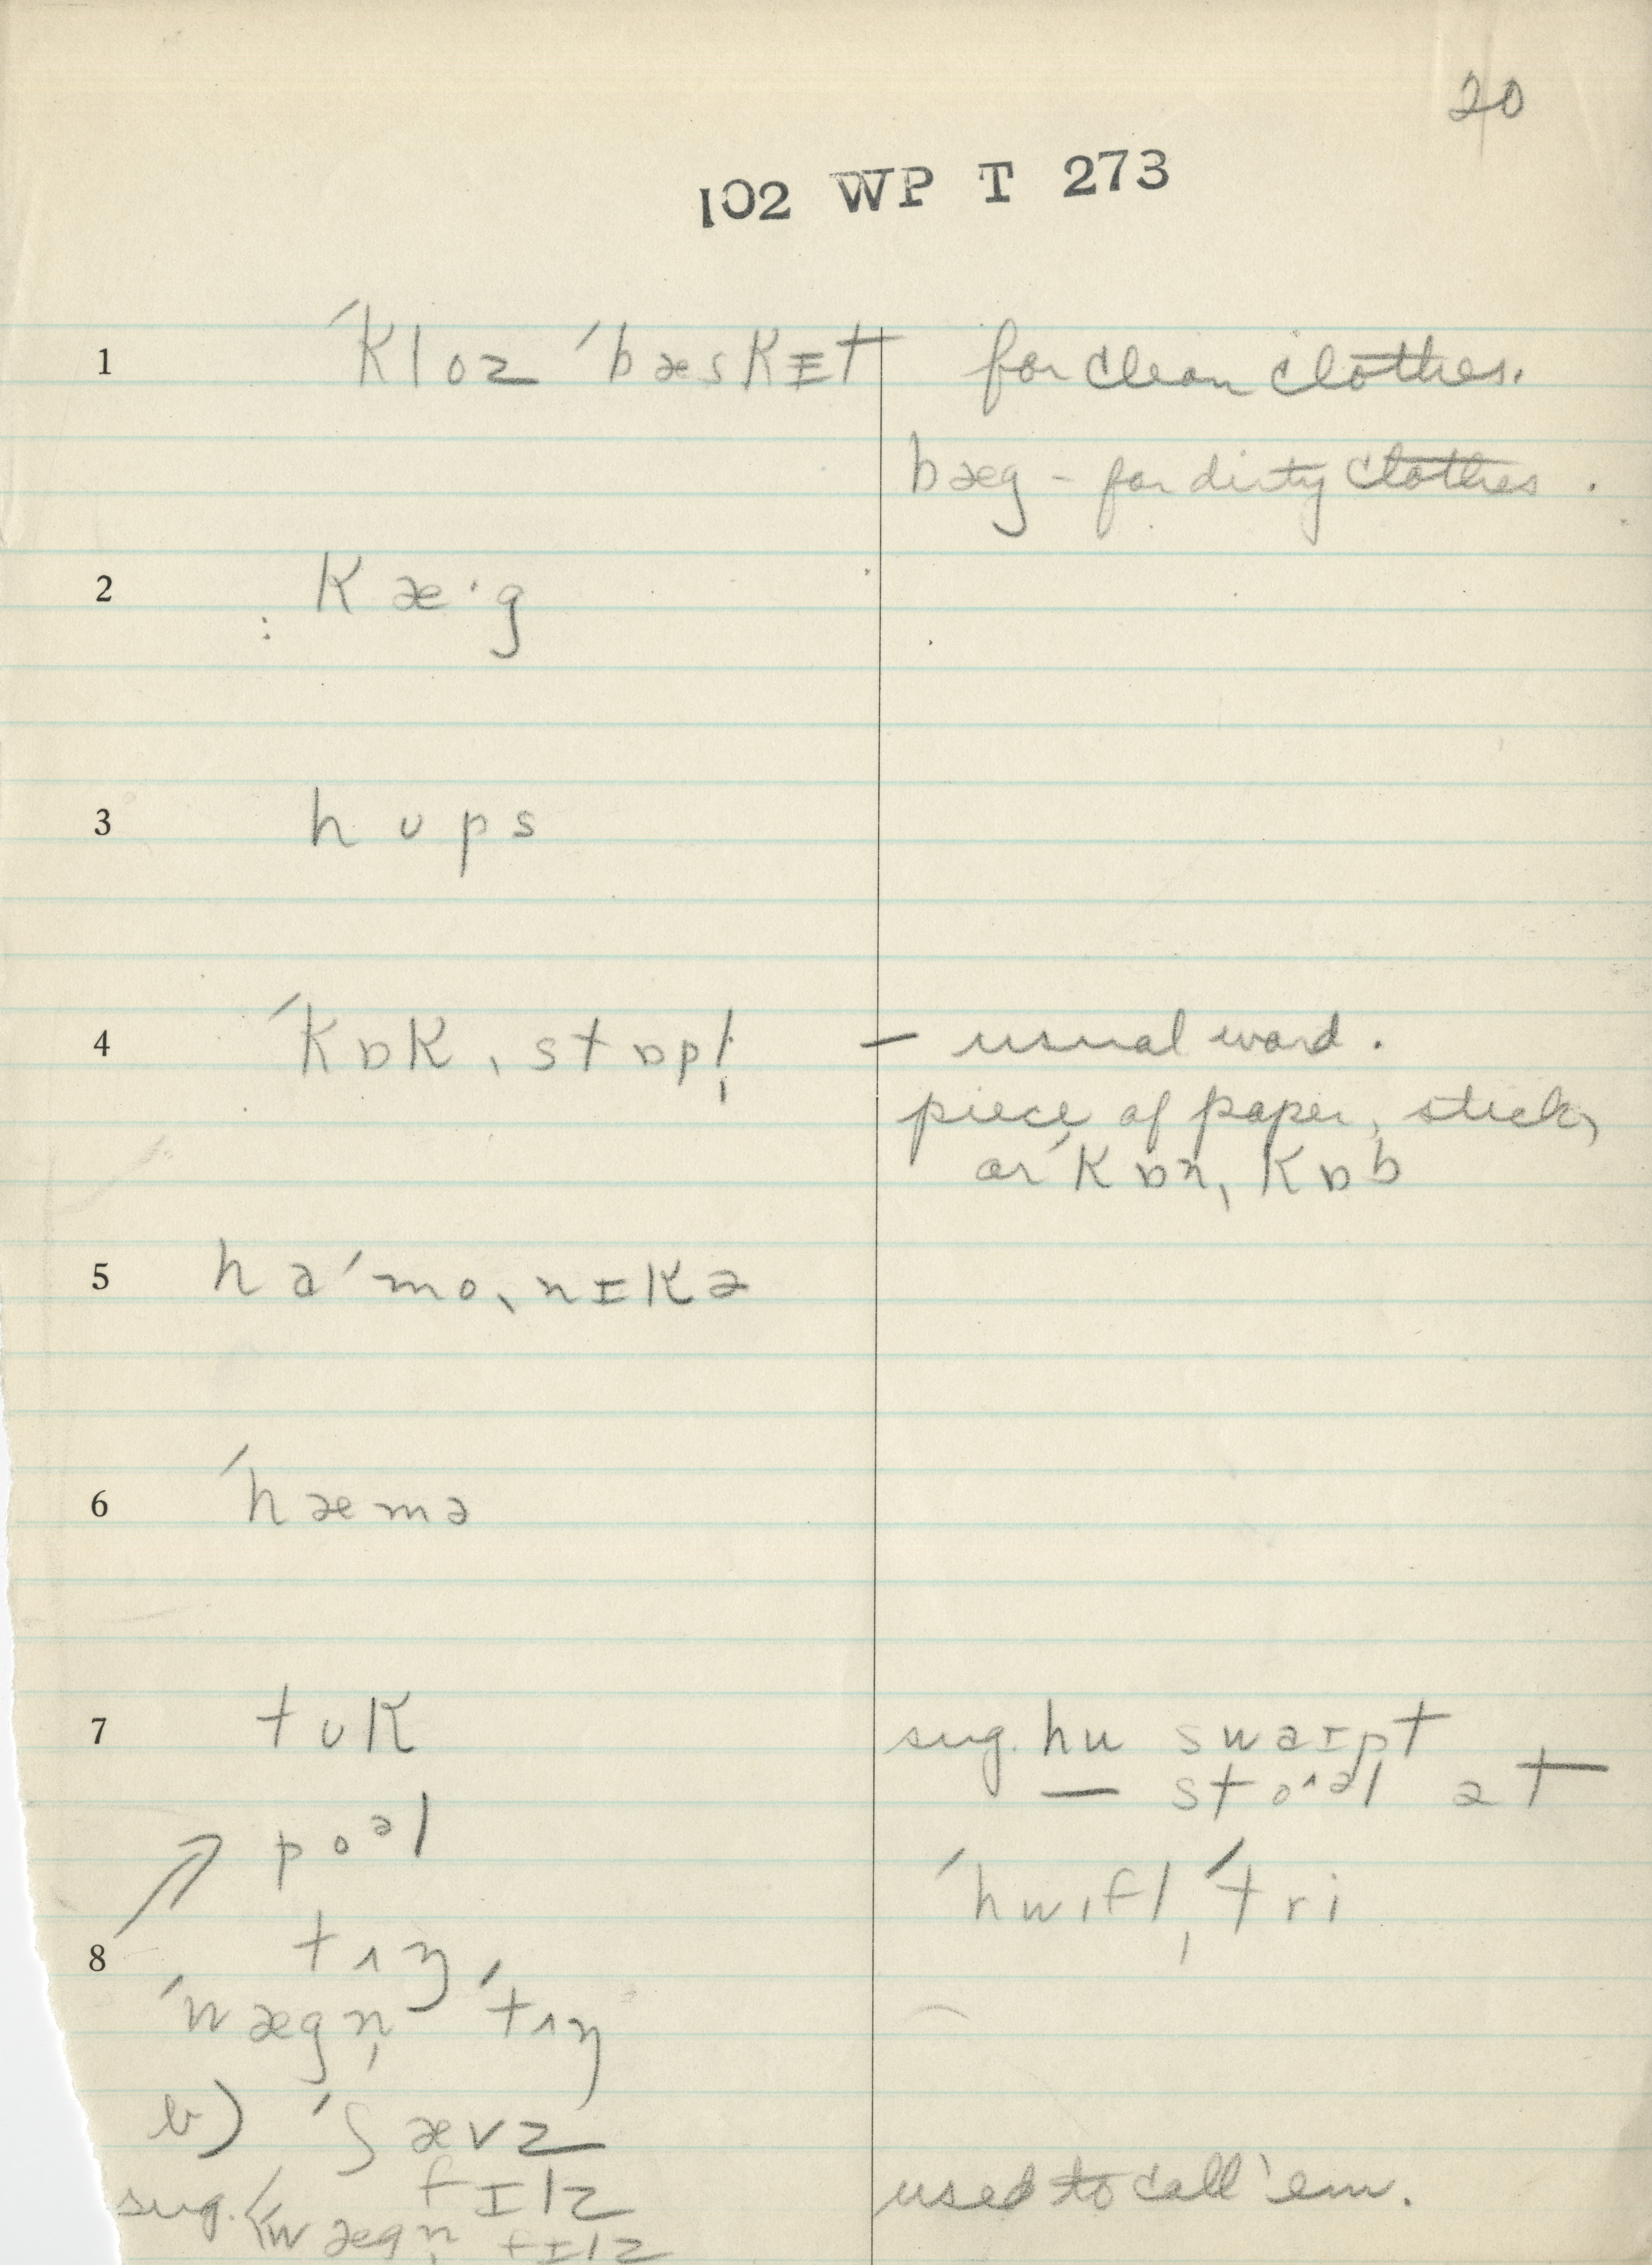 20
102 WP T 273
1 ˈkloz ˈbæskɪt for clean clothes.
bæg - for dirty clothes.
2 kæ·g
3 hʊps
4 ˈkɒkˌstɒpl̩ – usual word.
piece of paper, stick,
or ˈkɒrn ˌkɒb
5 haˈmoˌnɪkə
6 ˈhæmə
7 tʊk sug. hu swaɪpt
— sto^əl at
poəl
ˈhwɪfl̩ˈtri
8 tʌŋ
ˈwægn̩ ˈtʌŋ
b) ˈʃævz
fɪlz used to call 'em.
sug. ˈwægn̩ fɪlz